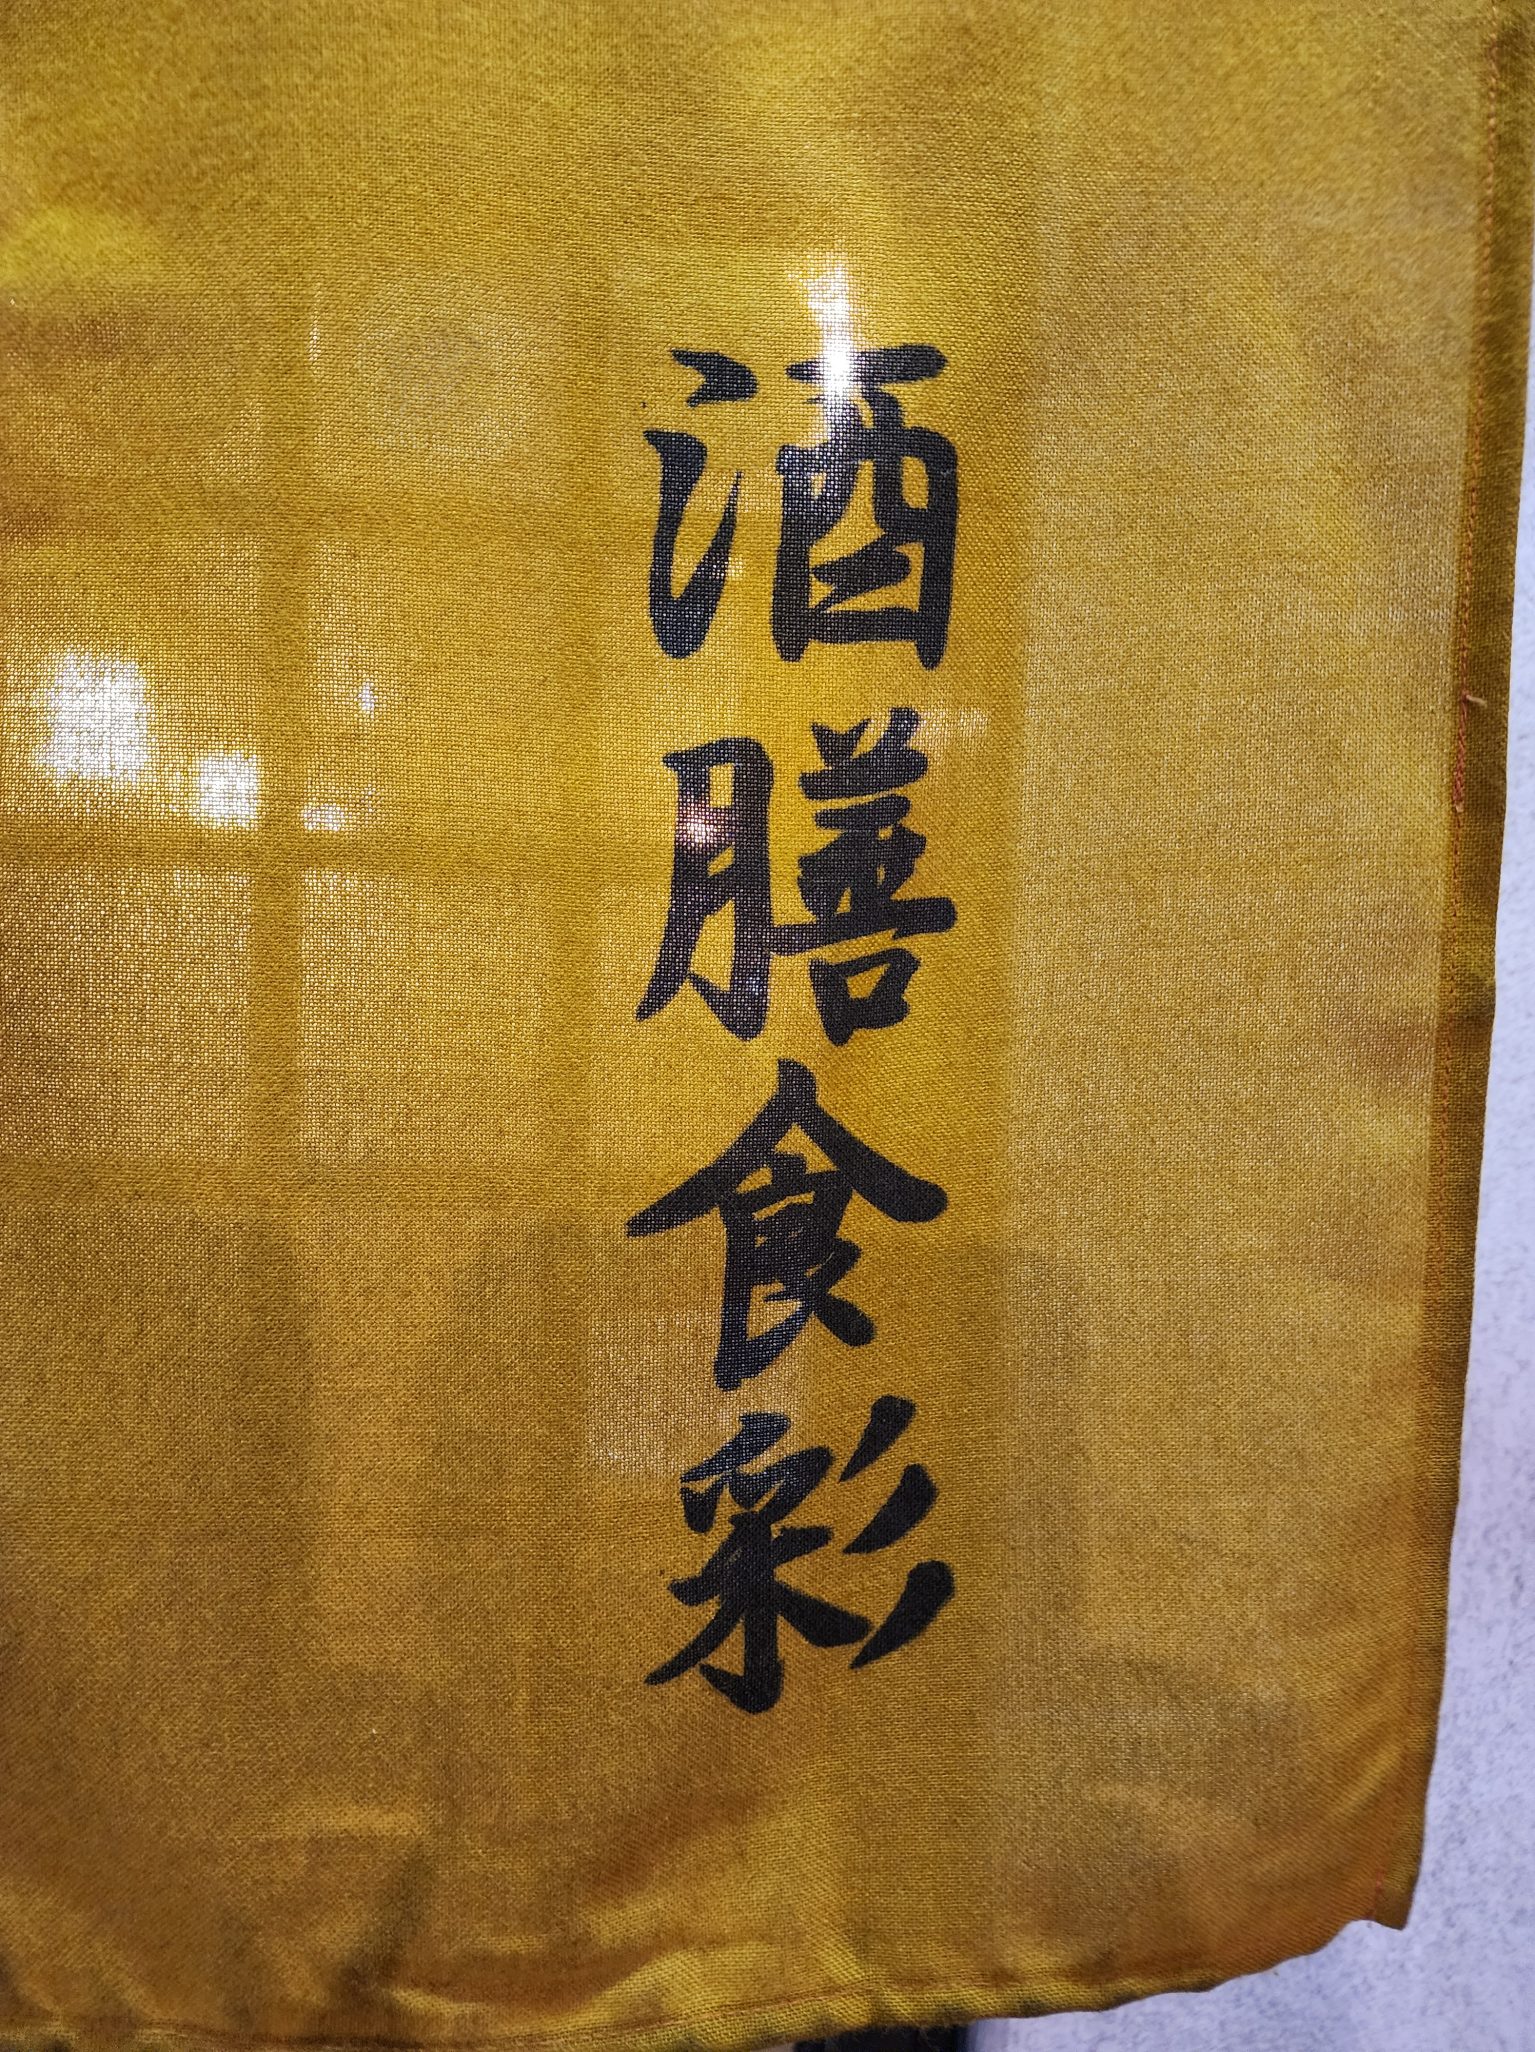 酒膳食彩